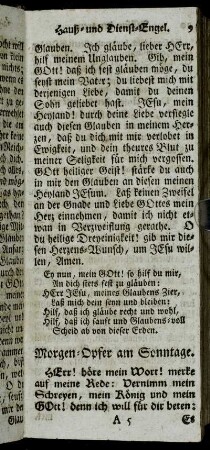 Hauß- und Dienst-Engel. 9
Glauben. Ich gläube, lieber HErr,
hilf meinem Unglauben. Gib, mein
GOtt! daß ich fest gläuben möge, du
seyst mein Vater; du liebest mich mit
derjenigen Liebe, damit du deinen
Sohn geliebet hast. JEsu, mein
Heyland! durch deine Liebe versiegle
auch diesen Glauben in meinem Her-
zen, daß du dich mit mir verlobet in
Ewigkeit, und dein theures Blut zu
meiner Seligkeit für mich vergossen.
GOtt heiliger Geist! stärke du auch
in mir den Glauben an diesen meinen
Heyland JEsum. Laß keinen Zweifel
an der Gnade und Liebe GOttes mein
Herz einnehmen, damit ich nicht et-
wan in Verzweiflung gerathe. O
du heilige Dreyeinigkeit! gib mir die-
sen Herzens-Wunsch, um JEsu wil-
len, Amen.
Ey nun, mein GOtt! so hilf du mir,
An dich stets fest zu gläuben:
HErr JEsu, meines Glaubens Zier,
Laß mich dein seyn und bleiben!
Hilf, daß ich gläube recht und wohl,
Hilf, daß ich sanft und Glaubens-voll
Scheid ab von dieser Erden.
Morgen-Opfer am Sonntage.
HErr! höre mein Wort! merke
auf meine Rede: Vernimm mein
Schreyen, mein König und mein
GOtt! denn ich will für dir beten;
A 5